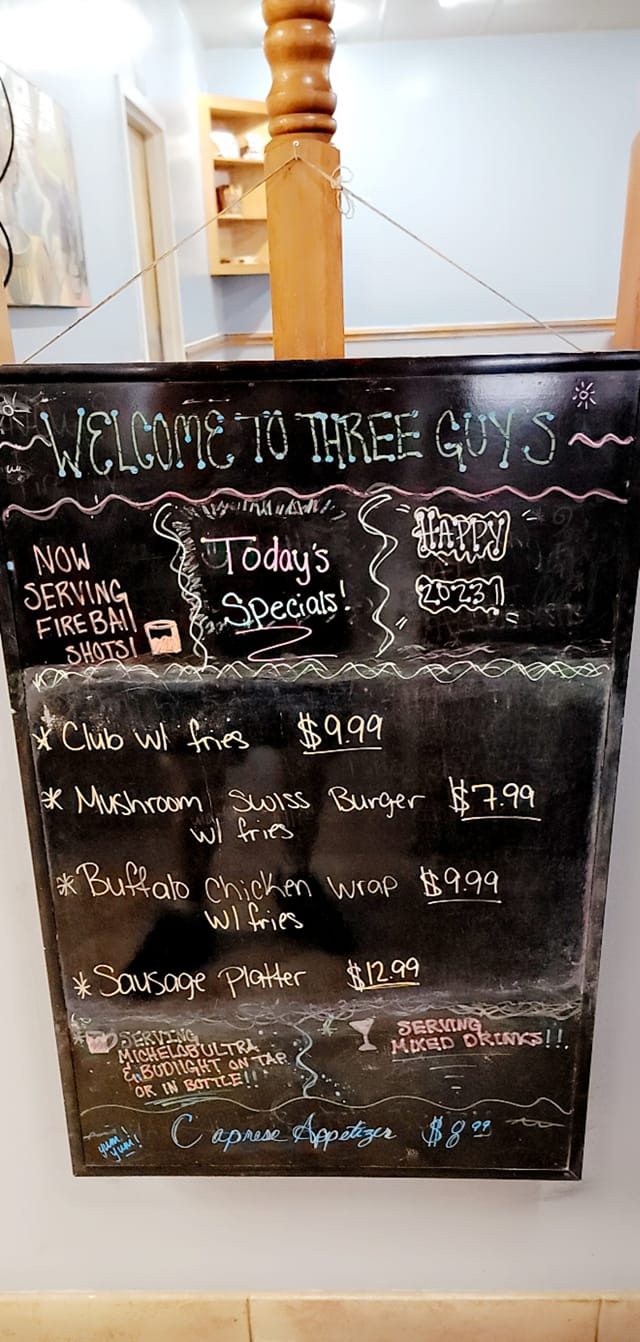 WELCOME TO THREE GUY'S
NOW
SERVING
FIREBAll
SHOTS!
Today's
Specials!
HAPPY
2023!
* Club w/ fries $9.99
* Mushroom Swiss Burger $7.99
w/ fries
* Buffalo Chicken Wrap $9.99
w/ fries
* Sausage Platter $12.99
SERVING
MICHELOB ULTRA
& BUDLIGHT ON TAP
OR IN BOTTLE!!
SERVING
MIXED DRINKS!!
yum!
yum!
Caprese Appetizer $8.99